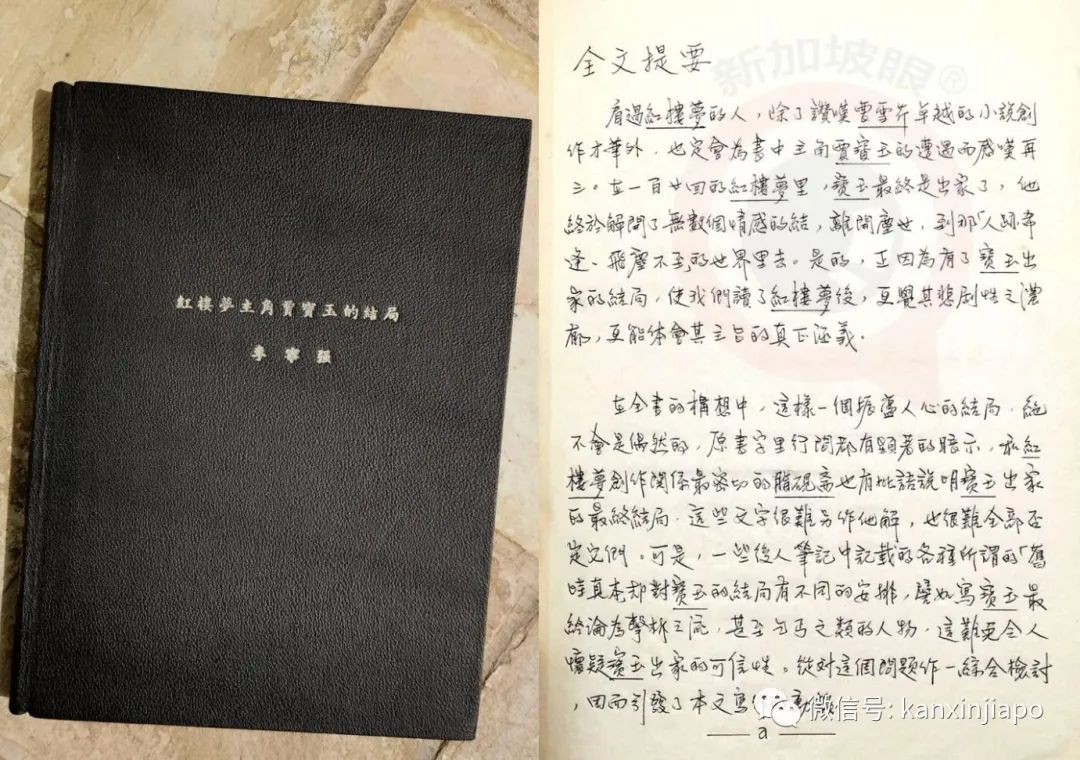 紅樓夢主角賈寶玉的結局
李寧強
新加坡眼®
全文提要
看過紅樓夢的人，除了讚嘆曹雪芹卓越的小說創
作才華外，也定會為書中主角賈寶玉的遭遇而感嘆再
三。在一百廿回的紅樓夢里，寶玉最終是出家了，他
終於解開了無數個情感的結，離開塵世，到那「人跡希
逢、飛塵不到」的世界里去。是的，正因為有了寶玉出
家的結局，使我們讀了紅樓夢後，更覺其悲剧性之濃
郁，更能体會其主旨的真正涵義．
在全書的構想中，這樣一個振盪人心的結局，絕
不會是偶然的，原書字里行間都有顯著的暗示，和紅
樓夢創作関係最密切的脂硯斋也有批語說明寶玉出家
的最終結局．這些文字很難另作他解，也很難全部否
定它們。可是，一些後人筆記中記載的各種所謂的「舊
時真本却對寶玉的結局有不同的安排，譬如寫寶玉最
終淪為擊柝之流，甚至乞丐之類的人物，這難免令人
懷疑寶玉出家的可信性。從対這個問題作一綜合檢討
，因而引發了本文寫 動機
a
微信号: kanxinjiapo